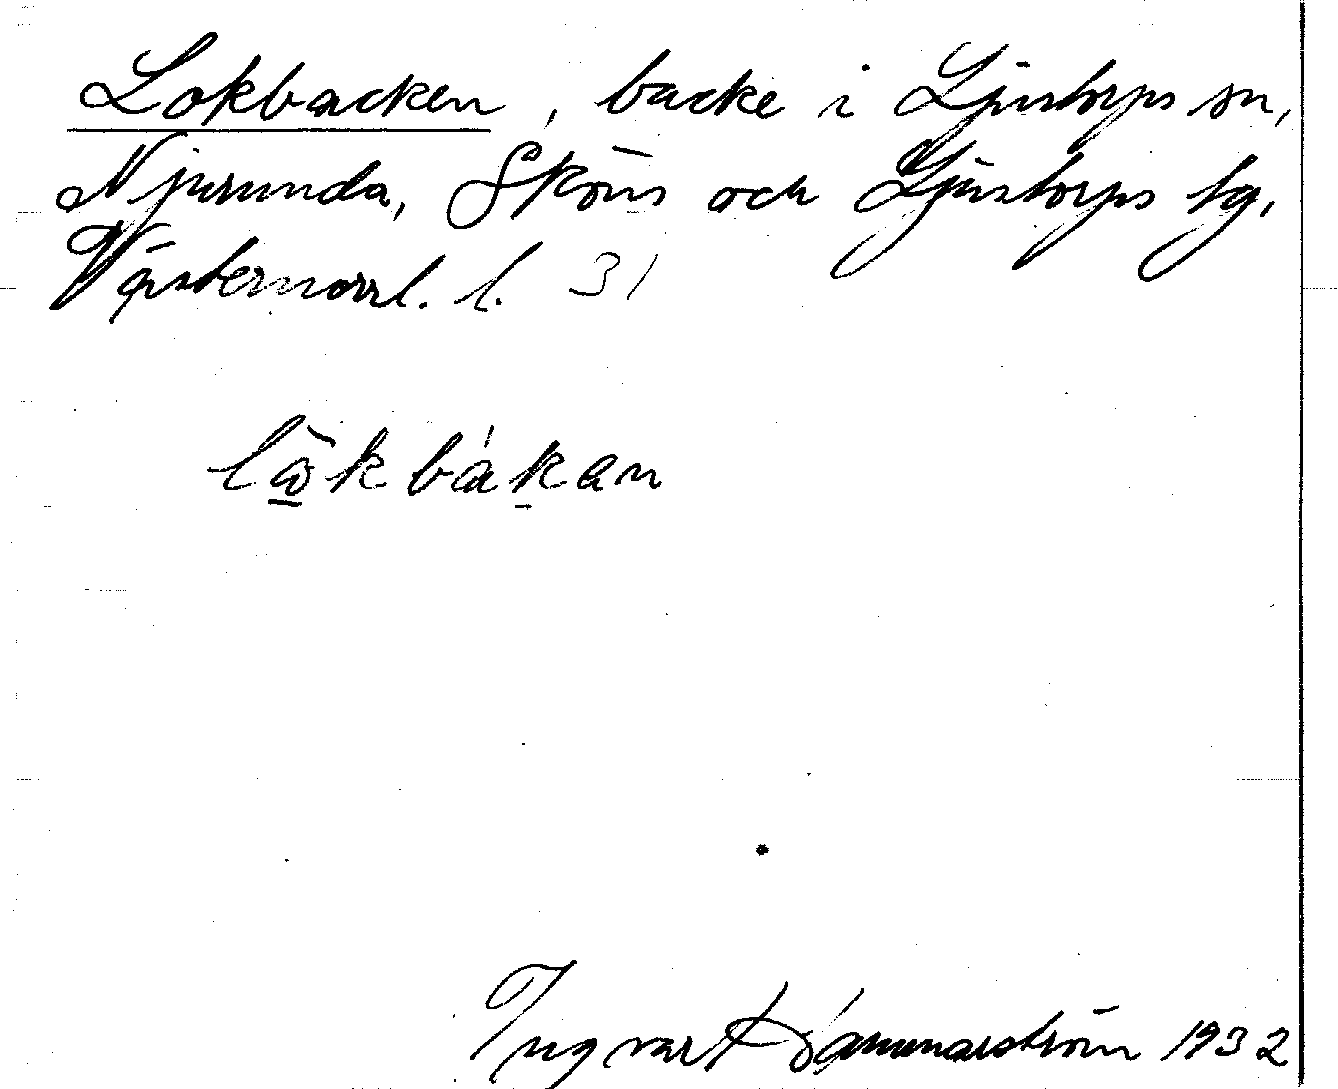 Lokbacken, backe i Ljustorps sn,
Njurunda, Sköns och Ljustorps tg,
Västernorrl. l. 31
Ingvar Hammarström 1932